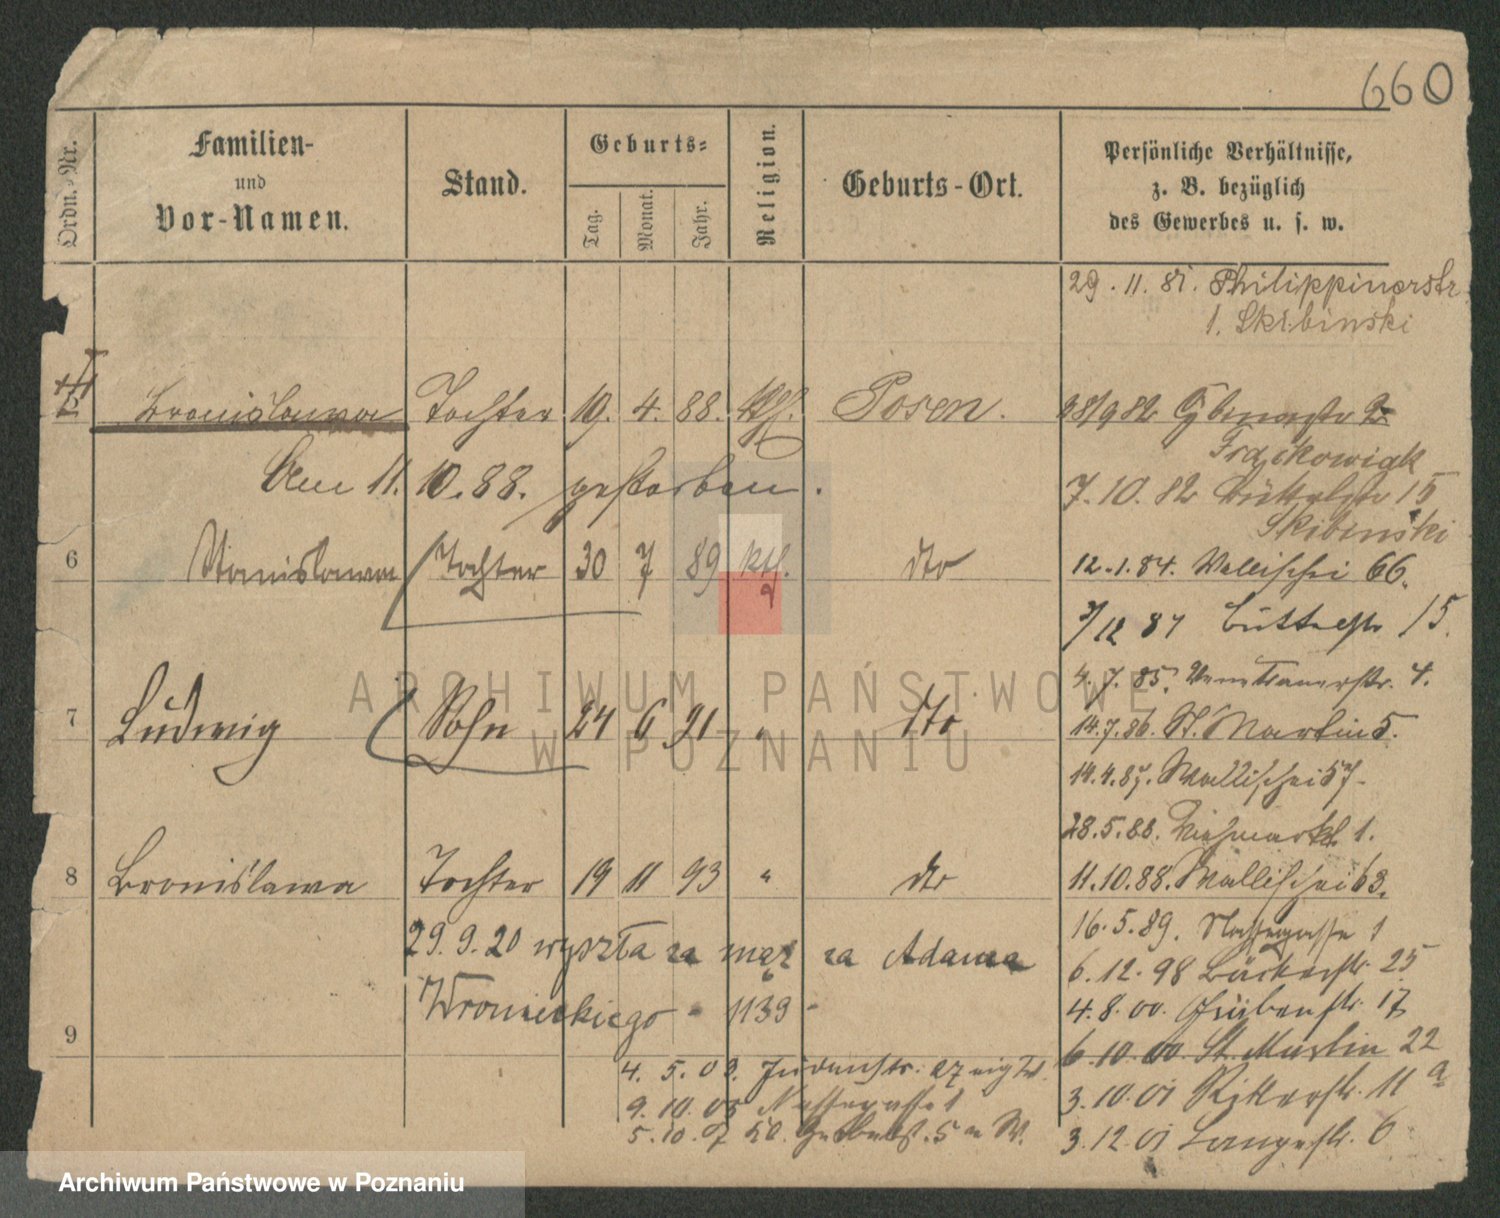 660
Ordn.-Nr.
Familien-
und
Vor-Namen.
Stand.
Geburts-
Tag.
Monat.
Jahr.
Religion.
Geburts-Ort.
Persönliche Verhältnisse,
z. B. bezüglich
des Gewerbes u. s. w.
29. 11. 81. Philippinerstr
1. Skibinski
Bronislawa Tochter 19. 4. 88. Posen.
Am 11. 10. 88. gestorben.
6 Stanislawa Tochter 30 7 89 kth. dto
7 Ludwig Sohn 24 6 91 " dto
8 Bronislawa Tochter 19 11 93 " dto
29. 9. 20 wyszła za mąż za Adama
Wronieckiego - 1139 -
9
28/9 82
Frąckowiak
7. 10. 82 Büttelstr 15
Skibinski
12. 1. 84. Wallischei 66.
3/12 87 Büttelstr 15.
4. 7. 85. Venetianerstr. 4.
14. 7. 86. St. Martin 5.
14. 4. 87. Wallischei 57.
28. 5. 88. Viehmarkt 1.
11. 10. 88. Wallischei 63.
16. 5. 89. Nassegasse 1
6. 12. 98 Bäckerstr. 25
4. 8. 00. Judenstr. 17
6. 10. 00. St. Martin 22
3. 10. 01 Ritterstr. 11 a
3. 12. 01 Langestr. 6
4. 5. 03. Judenstr. 27
9. 10. 05 Nassegasse 1
5. 10. 07
ARCHIWUM PAŃSTWOWE
W POZNANIU
Archiwum Państwowe w Poznaniu